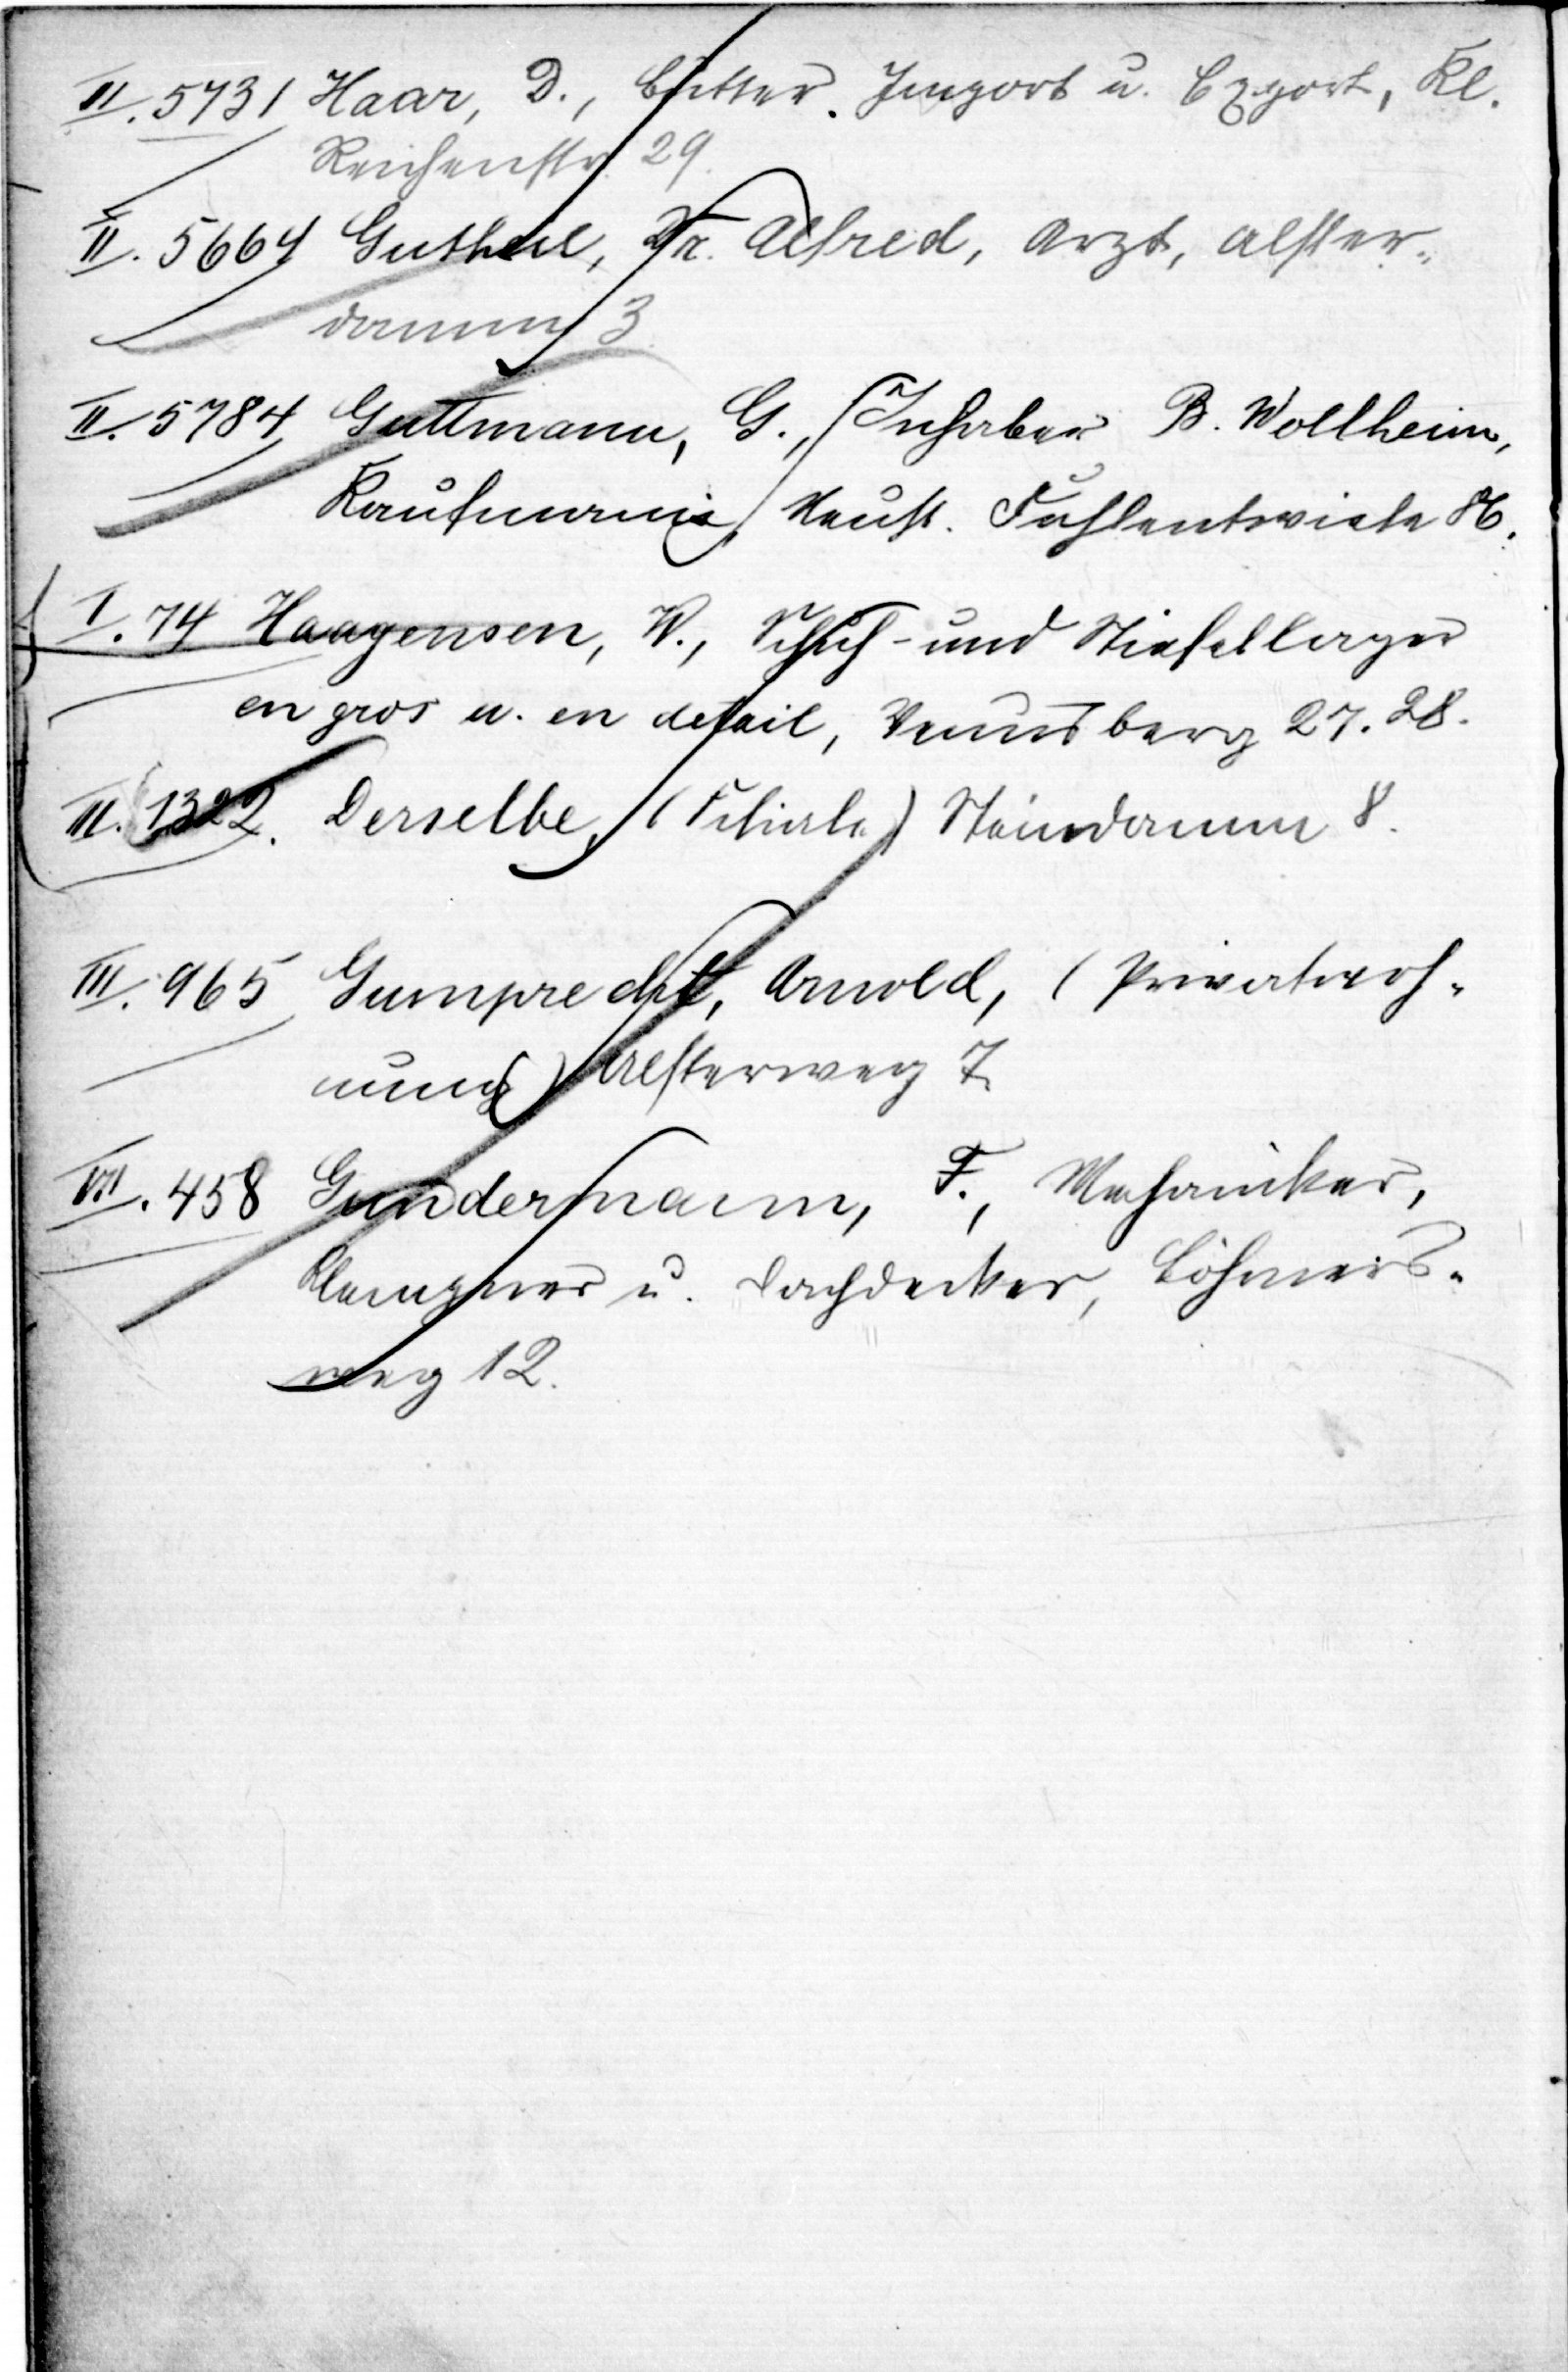 II. 5731 Haar, D., Butter. Import u. Export, Kl.
Reichenstr. 29.
II. 5664 Gutheil, Dr. Alfred, Arzt, Alster-
damm 3.
II. 5784 Guttmann, G., Inhaber B. Wollheim,
Kaufmann, Neust. Fuhlentwiete 86.
I. 74 Haagensen, W., Schuh- und Stiefellager
en gros u. en detail, Venusberg 27. 28.
III. 1322. Derselbe, (Filiale) Steindamm 8.
III. 965 Gumprecht, Arnold, (Privatwoh-
nung) Alsterweg 7.
VII. 458 Gundermann, F., Mechaniker,
Klempner u. Dachdecker, Böhmers-
weg 12.